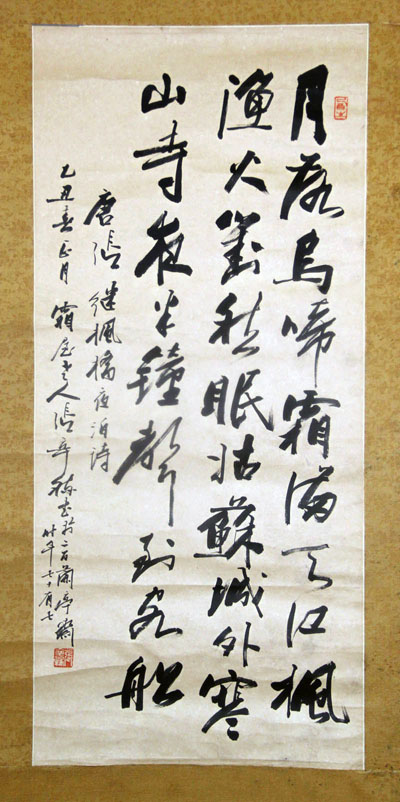 月落烏啼霜滿天江楓
漁火對愁眠姑蘇城外寒
山寺夜半鐘聲到客船
唐張繼楓橋夜泊詩
乙丑春正月霜屋老人張辛稼書於二百蘭亭齋時年七十有七